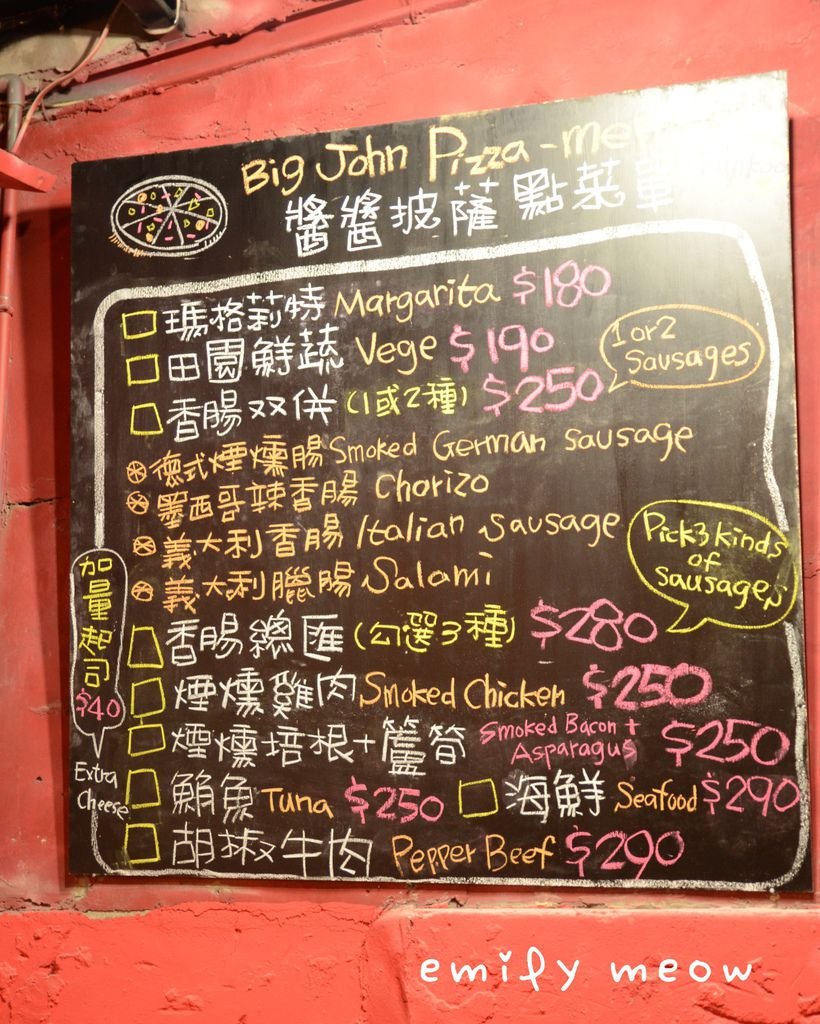 Big John Pizza - me
醬醬披薩 點菜單
瑪格莉特 Margarita $180
田園鮮蔬 Vege $190
1 or 2 sausages
香腸双併 (1或2種) $250
德式煙燻腸 Smoked German sausage
墨西哥辣香腸 Chorizo
義大利香腸 Italian sausage
義大利臘腸 Salami
Pick 3 kinds of sausages
香腸總匯 (勾選3種) $280
煙燻雞肉 Smoked Chicken $250
煙燻培根+蘆筍 Smoked Bacon + Asparagus $250
鮪魚 Tuna $250
海鮮 Seafood $290
胡椒牛肉 Pepper Beef $290
加量起司 $40
Extra Cheese
emify meow